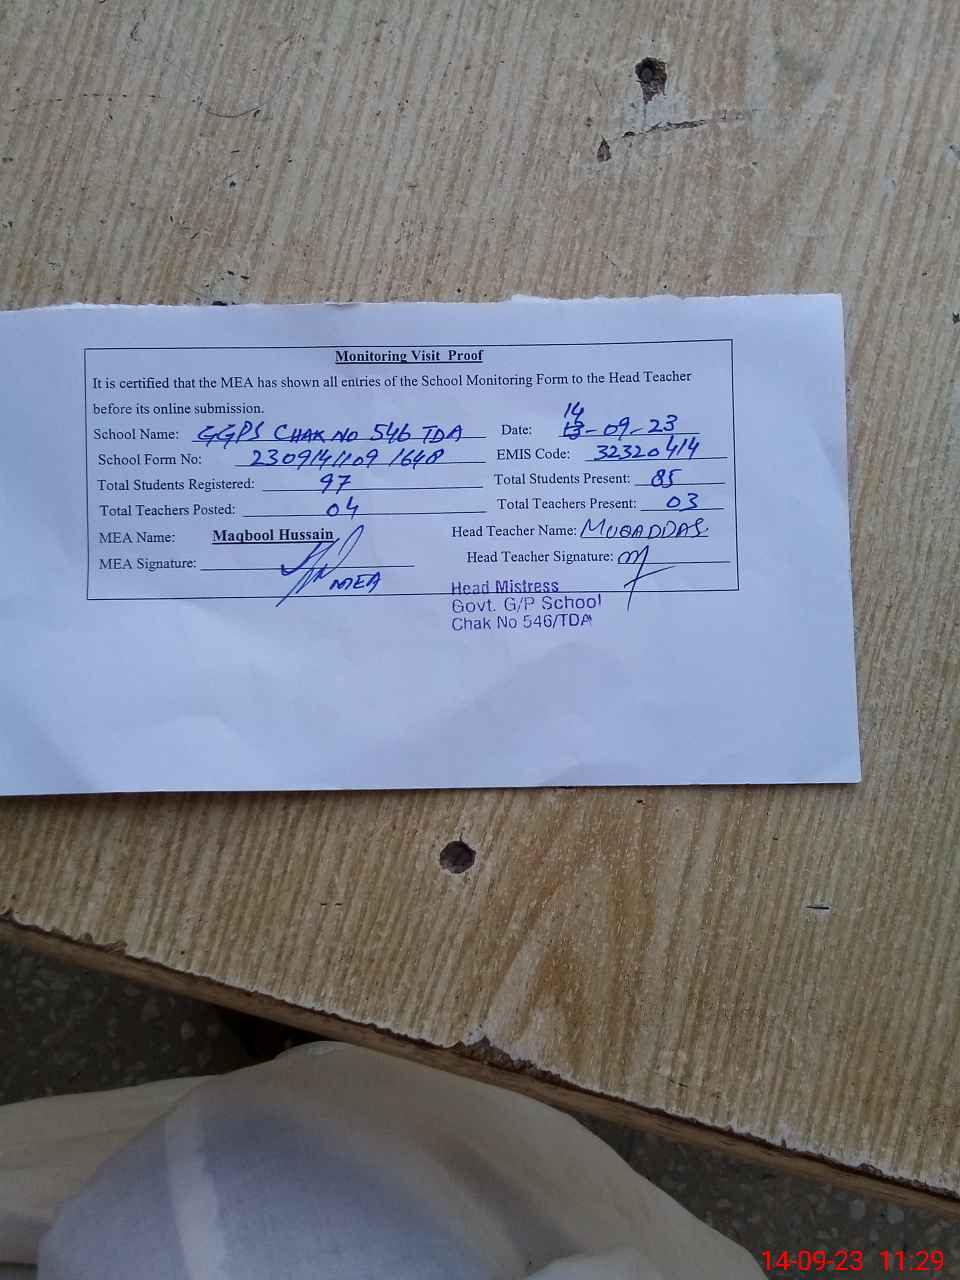 Monitoring Visit Proof
It is certified that the MEA has shown all entries of the School Monitoring Form to the Head Teacher
before its online submission.
School Name: GGPS CHAK NO 546 TDA Date: 14-09-23
School Form No: 2309141109 1648 EMIS Code: 32320414
Total Students Registered: 97 Total Students Present: 85
Total Teachers Posted: 04 Total Teachers Present: 03
MEA Name: Maqbool Hussain Head Teacher Name: MUQADDAS.
MEA Signature: MEA Head Teacher Signature:
Head Mistress
Govt. G/P School
Chak No 546/TDA
14-09-23 11:29